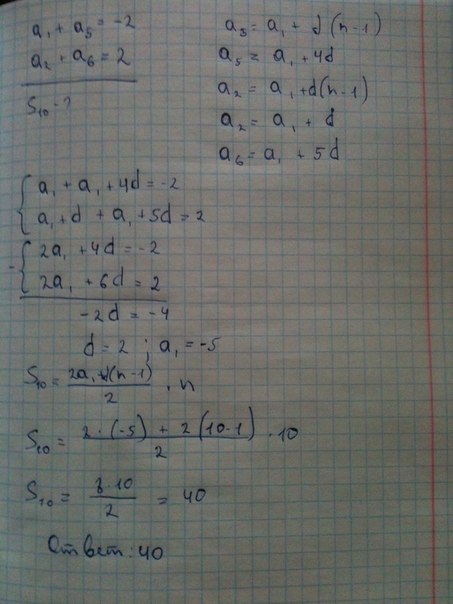 a₁ + a₅ = -2
a₂ + a₆ = 2
S₁₀ - ?
a₅ = a₁ + d(n-1)
a₅ = a₁ + 4d
a₂ = a₁ + d(n-1)
a₂ = a₁ + d
a₆ = a₁ + 5d
{ a₁ + a₁ + 4d = -2
a₁ + d + a₁ + 5d = 2
- { 2a₁ + 4d = -2
2a₁ + 6d = 2
-2d = -4
d = 2 ; a₁ = -5
S₁₀ = (2a₁ + d(n-1))/2 · n
S₁₀ = (2·(-5) + 2(10-1))/2 · 10
S₁₀ = (8·10)/2 = 40
Ответ: 40